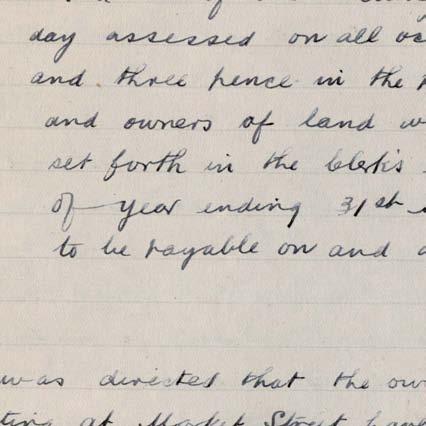 day assessed on all
and three pence in the
and owners of land
set forth in the Clerk's
of year ending 31st
to be payable on and
was directed that the
at Market Street